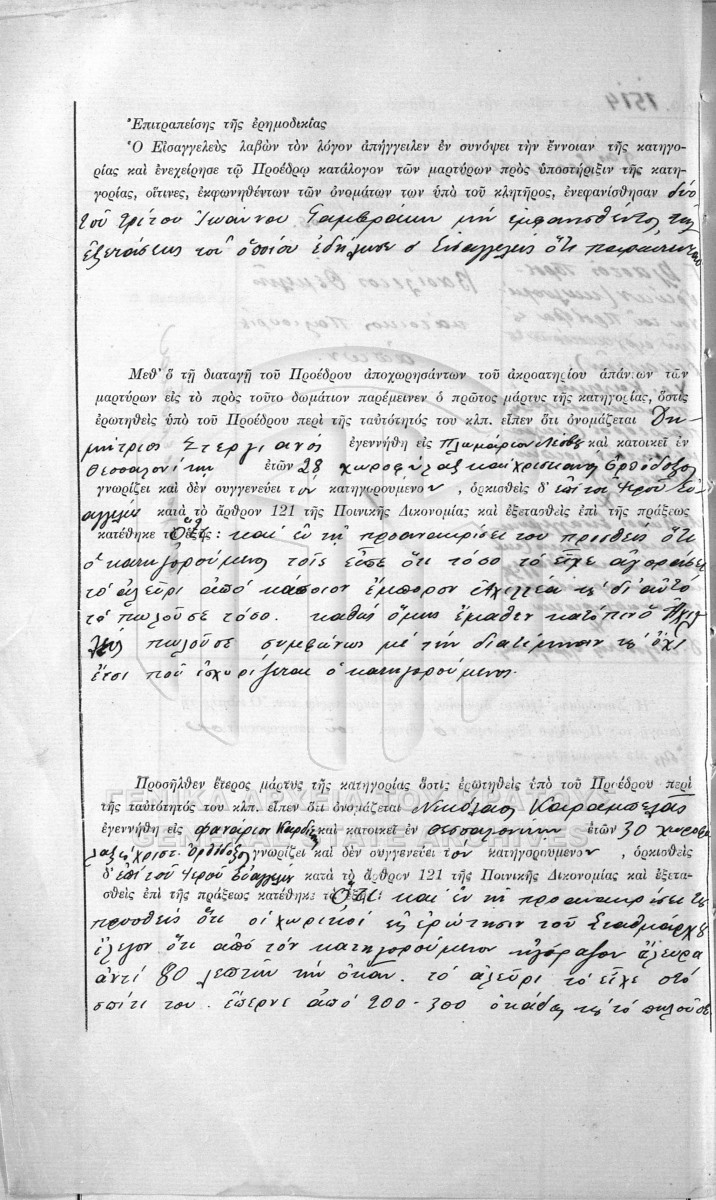 1514
Ἐπιτραπείσης τῆς ἐρημοδικίας
Ὁ Εἰσαγγελεὺς λαβὼν τὸν λόγον ἀπήγγειλεν ἐν συνόψει τὴν ἔννοιαν τῆς κατηγο-
ρίας καὶ ἐνεχείρησε τῷ Προέδρῳ κατάλογον τῶν μαρτύρων πρὸς ὑποστήριξιν τῆς κατη-
γορίας, οἵτινες, ἐκφωνηθέντων τῶν ὀνομάτων των ὑπὸ τοῦ κλητῆρος, ἐνεφανίσθησαν δύο
τοῦ τρίτου Ἰωάννου μὴ ἐμφανισθέντος τῆς
ἐξετάσεως τοῦ ὁποίου ἐδήλωσεν ὁ Εἰσαγγελεὺς ὅτι παραιτεῖται
Μεθ' ὃ τῇ διαταγῇ τοῦ Προέδρου ἀποχωρησάντων τοῦ ἀκροατηρίου ἁπάντων τῶν
μαρτύρων εἰς τὸ πρὸς τοῦτο δωμάτιον παρέμεινεν ὁ πρῶτος μάρτυς τῆς κατηγορίας, ὅστις
ἐρωτηθεὶς ὑπὸ τοῦ Προέδρου περὶ τῆς ταὐτότητός του κλπ. εἶπεν ὅτι ὀνομάζεται Δη-
μήτριος Στεργιανός ἐγεννήθη εἰς Πλωμάριον Λέσβου καὶ κατοικεῖ ἐν
Θεσσαλονίκῃ ἐτῶν 28 χωροφύλαξ καὶ χριστιανὸς Ὀρθόδοξος
γνωρίζει καὶ δὲν συγγενεύει τὸν κατηγορούμενον, ὁρκισθεὶς δ' ἐπὶ τοῦ Ἱεροῦ Εὐ-
αγγελίου κατὰ τὸ ἄρθρον 121 τῆς Ποινικῆς Δικονομίας καὶ ἐξετασθεὶς ἐπὶ τῆς πράξεως
κατέθηκε τὰ ἑξῆς: Ὅτι καὶ ἐν τῇ προανακρίσει του προσθεὶς ὅτι
ὁ κατηγορούμενος τοῖς εἶπε ὅτι τόσο τὸ εἶχε ἀγοράσει
τὸ ἀλεῦρι ἀπὸ κάποιον ἔμπορον Ἀχιλλέα κ' δι' αὐτὸ
τὸ πωλοῦσε τόσο. καθὼς ὅμως ἔμαθεν κατόπιν ὁ Ἀχιλ-
λεὺς πωλοῦσε συμφώνως μὲ τὴν διατίμησιν κ' ὄχι
ἔτσι ποῦ ἰσχυρίζεται ὁ κατηγορούμενος.
Προσῆλθεν ἕτερος μάρτυς τῆς κατηγορίας ὅστις ἐρωτηθεὶς ὑπὸ τοῦ Προέδρου περὶ
τῆς ταὐτότητός του κλπ. εἶπεν ὅτι ὀνομάζεται Νικόλαος
ἐγεννήθη εἰς Φανάριον καὶ κατοικεῖ ἐν Θεσσαλονίκῃ ἐτῶν 30 χωροφύ-
λαξ κ' χριστ. Ὀρθόδοξος γνωρίζει καὶ δὲν συγγενεύει τὸν κατηγορούμενον, ὁρκισθεὶς
δ' ἐπὶ τοῦ Ἱεροῦ Εὐαγγελίου κατὰ τὸ ἄρθρον 121 τῆς Ποινικῆς Δικονομίας καὶ ἐξετα-
σθεὶς ἐπὶ τῆς πράξεως κατέθηκε τὰ ἑξῆς: Ὅτι καὶ ἐν τῇ προανακρίσει του
προσθεὶς ὅτι οἱ χωρικοὶ εἰς ἐρώτησιν τοῦ Σταθμάρχου
ἔλεγον ὅτι ἀπὸ τὸν κατηγορούμενον ἠγόραζον ἄλευρα
ἀντὶ 80 λεπτῶν τὴν ὀκᾶν. τὸ ἀλεῦρι τὸ εἶχε στὸ
σπίτι του. ἔπερνε ἀπὸ 200-300 ὀκάδας κ' τὸ πωλοῦσε
ΓΕΝΙΚΑ ΑΡΧΕΙΑ ΤΟΥ ΚΡΑΤΟΥΣ
GENERAL STATE ARCHIVES